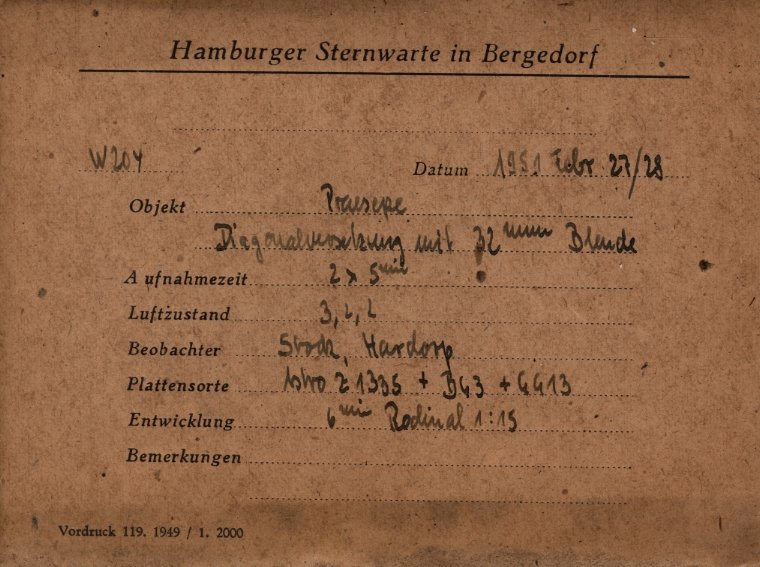 Hamburger Sternwarte in Bergedorf
W204 Datum 1951 Febr 27/28
Objekt Praesepe
Diagonalversetzung mit 32 mm Blende
Aufnahmezeit 2 x 5 min
Luftzustand 3, 2, 2
Beobachter Stock, Hardorp
Plattensorte Astro Z 1335 + BG3 + GG13
Entwicklung 6 min Rodinal 1:15
Bemerkungen
Vordruck 119. 1949 / 1. 2000